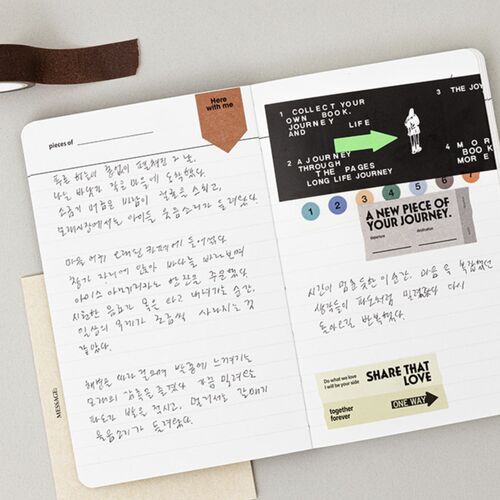 Here
with me
pieces of
푸른 하늘에 흠 없이 펼쳐진 그 날,
나는 바닷가 작은 마을에 도착했다.
소금기 머금은 바람이 얼굴을 스치고,
모래사장에서는 아이들 웃음소리가 들려왔다.
마을 어귀 오래된 카페에 들어섰다.
창가 자리에 앉아 바다를 바라보며
아이스 아메리카노 한 잔을 주문했다.
시원한 음료가 목을 타고 내려가는 순간,
일상의 무게가 조금씩 사라지는 것
같았다.
해변을 따라 걸으며 발끝에 느껴지는
모래의 감촉을 즐겼다. 가끔 밀려오는
파도가 발을 적시고, 멀리서는 갈매기
울음소리가 들려왔다.
MESSAGE:
1 COLLECT YOUR
OWN BOOK.
JOURNEY LIFE
AND
2 A JOURNEY
THROUGH
THE PAGES
LONG LIFE JOURNEY
3 THE JOY
4 MOR
BOOK
MORE
1 2 3 4 5 6 7
A NEW PIECE OF
YOUR JOURNEY.
Departure
Destination
시간이 멈춘 듯한 이 순간, 마음 속 복잡했던
생각들이 파도처럼 밀려갔다 다시
돌아오길 반복했다.
Do what we love
I will be your side
SHARE THAT
LOVE
together
forever
ONE WAY